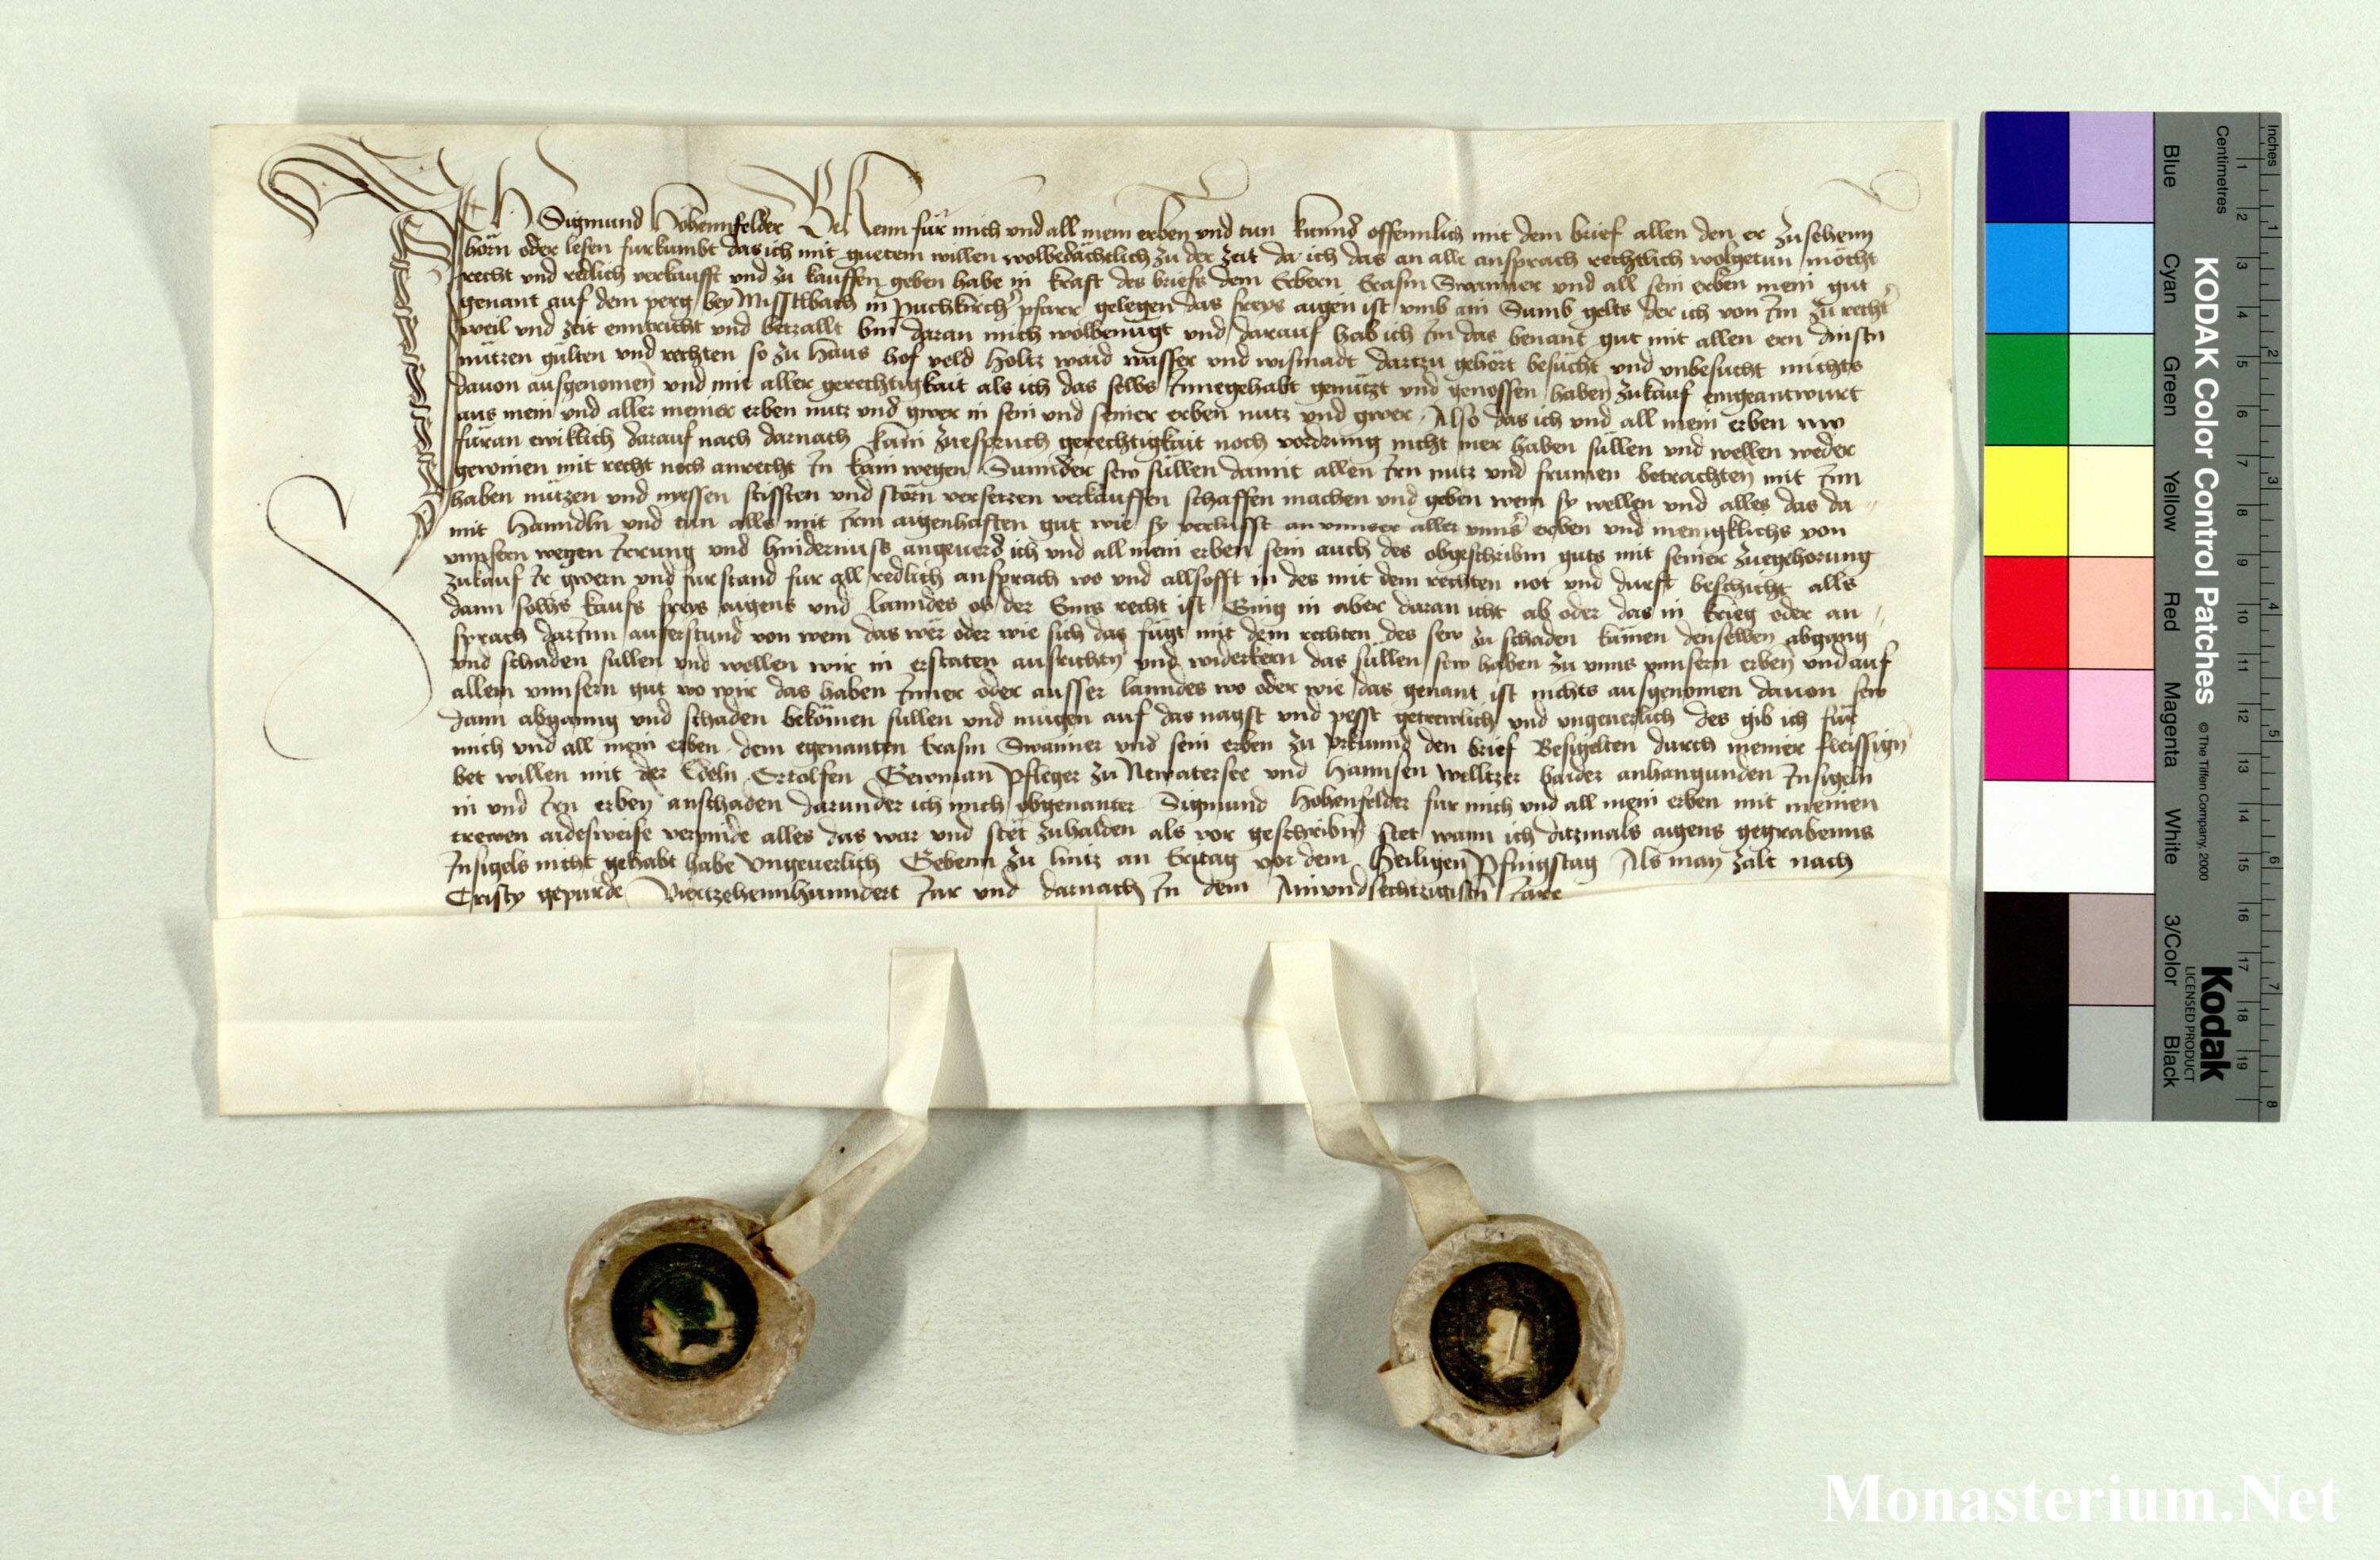 Ich Sigmund Hohennfelder Bekenn für mich vnd all mein erben vnd tun kunnd offennlich mit dem brief allen den er zusehenn
hörn oder lesen furkumbt das ich mit guetem willen wolbedächtlich zu der zeit da ich das an alle ansprach rechtlich wolgetun möcht
recht vnd redlich verkaufft vnd zu kauffen geben habe in kraft des briefs dem Erbern Erasm Swainer vnd all sein erben mein gut
genant auf dem perg bey Misstlbach in puchkircher pfarr gelegen das freys aigen ist vmb ain Sumb gelts der ich von Im zu recht
weil vnd zeit enntricht vnd betzallt bin daran mich wolbenügt vnd darauf hab ich Im das benant gut mit allen ern dinstn
nützen gülten vnd rechten so zu haus hof veld holtz waid wasser vnd wismadt dartzu gehört besücht vnd vnbesucht nichts
dauon ausgenomen vnd mit aller gerechtigkait als ich das selbs Innegehabt genützt vnd genossen haben zukauf eingeantwurt
aus mein vnd aller meiner erben nutz vnd gwer in sein vnd seiner erben nutz vnd gwer Also das ich vnd all mein erben nw
füran ewiklich darauf nach darnach kain zuespruch gerechtigkait noch vordrung nicht mer haben süllen vnd wellen weder
gewinen mit recht noch anrecht In kain wegen Sunnder sew süllen damit allen Irn nutz vnd frumen betrachten mit Inn
haben nützen vnd nyessen stifften vnd störn versetzen verkauffen schaffen machen vnd geben wem sy wellen vnd alles das da
mit hanndln vnd tun alls mit Irm aigenhaften gut wie sy verlusst an vnnser aller vnnser erben vnd menigklichs von
vnnsern wegen Irrung vnd hindernuss angeuerd ich vnd all mein erben sein auch des obgeschribm guts mit seiner zuegehorung
zukauf Ir gwern vnd furstand fur all redlich ansprach wo vnd allsofft in des mit dem rechten not vnd durft beschicht alls
dann solhs kaufs freys aigens vnd lanndes ob der Enns recht ist Ging in aber daran icht ab oder das in krieg oder an
sprach darInn auferstund von wem das wër oder wie sich das fügt mit dem rechten des sew zu schaden kämen denselben abganng
vnd schaden süllen vnd wellen wir in erstaten ausrichten vnd widerkern das süllen sew haben zu vnns vnnsern erben vnd auf
allem vnnsern gut wo wir das haben Inner oder ausser lanndes wo oder wie das genant ist nichts ausgenomen dauon sew
dann abganng vnd schaden bekömen sullen vnd mügen auf das nagst vnd pesst getrewlich vnd vngeuerlich des gib ich für
mich vnd all mein erben dem egenanten Erasm Swainer vnd sein erben zu vrkunnd den brief Besigelten durch meiner fleissign
bet willen mit der Edeln Ortolfen Gewman pfleger zu Newatersee vnd Hannsen Welltzer baider anhangunden Insigeln
in vnd Irn erben anschaden darunder ich mich obgenanter Sigmund Hohenfelder fur mich vnd all mein erben mit meinen
trewen aidesweise verpinde alles das war vnd stët zuhalden als vor geschribm stet wann ich ditzmals aigens gegrabenns
Insigels nicht gehabt habe Vngeuerlich Gebenn zu lintz an Eritag vor dem Heiligen Pfingstag Als man zalt nach
Cristy gepürde Viertzehennhunndert Iar vnd darnach In dem Ainvndsechtzigistn Iare
KODAK Color Control Patches
© The Tiffen Company, 2000
Kodak
LICENSED PRODUCT
Blue Cyan Green Yellow Red Magenta White 3/Color Black
Centimetres 1 2 3 4 5 6 7 8 9 10 11 12 13 14 15 16 17 18 19
Inches 1 2 3 4 5 6 7 8
Monasterium.Net